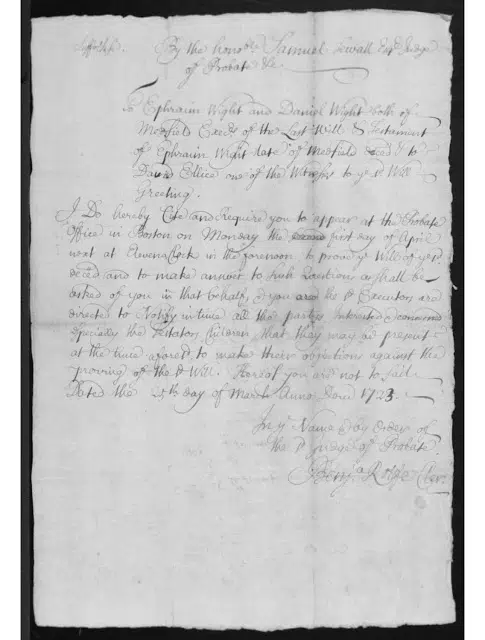 Suffolk ss. By the honoble Samuel Sewall Esqr Judge
of Probate &c.
To Ephraim Wight and Daniel Wight both of
Medfield Execrs of the Last Will & Testament
of Ephraim Wight late of Medfield decd & to
David Ellice one of the Witnesses to ye sd Will
Greeting.
I Do hereby Cite and require you to appear at the Probate
Office in Boston on Monday the first day of April
next at Eleven Clock in the forenoon to prove ye Will of ye sd
decd and to make answer to such Questions as shall be
asked of you in that behalf, & you are the sd Executors are
directed to Notify in time all the partys Interested & concerned
Especially the Testators Children, that they may be present
at the time aforesd, to make their objections against the
proving of the sd Will. Hereof you are not to fail
Dated the day of March Anno Domi 1723.
In ye Name & by Order of
the sd Judge of Probate
Benja Rolfe Cler